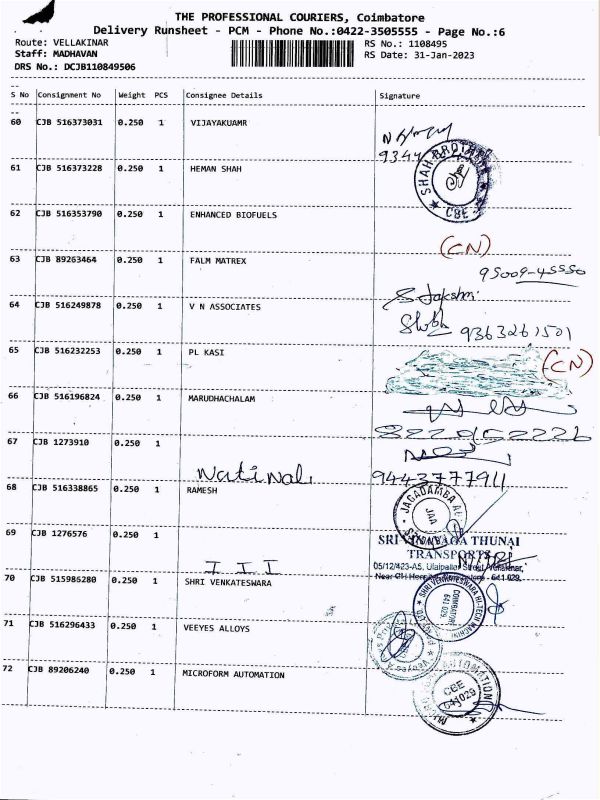 THE PROFESSIONAL COURIERS, Coimbatore
Delivery Runsheet - PCM - Phone No.:0422-3505555 - Page No.:6
Route: VELLAKINAR
RS No.: 1108495
Staff: MADHAVAN
RS Date: 31-Jan-2023
DRS No.: DCJB110849506
S No Consignment No Weight PCS Consignee Details Signature
60 CJB 516373031 0.250 1 VIJAYAKUAMR
9344
61 CJB 516373228 0.250 1 HEMAN SHAH
SHAH BROTHERS
CBE
62 CJB 516353790 0.250 1 ENHANCED BIOFUELS
(CN)
63 CJB 89263464 0.250 1 FALM MATREX
95009-45550
64 CJB 516249878 0.250 1 V N ASSOCIATES
9363261501
65 CJB 516232253 0.250 1 PL KASI
(CN)
66 CJB 516196824 0.250 1 MARUDHACHALAM
67 CJB 1273910 0.250 1
National
9443777941
68 CJB 516338865 0.250 1 RAMESH
JAGADAMBA
JAA
69 CJB 1276576 0.250 1
SRI VINAYAGA THUNAI
TRANSPORTS
05/12/423-A5, Ulaipallar Street, Vellakinar,
641 029.
70 CJB 515986280 0.250 1 SHRI VENKATESWARA
SHRI VENKATESWARA HI-TECH
COIMBATORE
641 029
71 CJB 516296433 0.250 1 VEEYES ALLOYS
72 CJB 89206240 0.250 1 MICROFORM AUTOMATION
AUTOMATION
CBE
641029